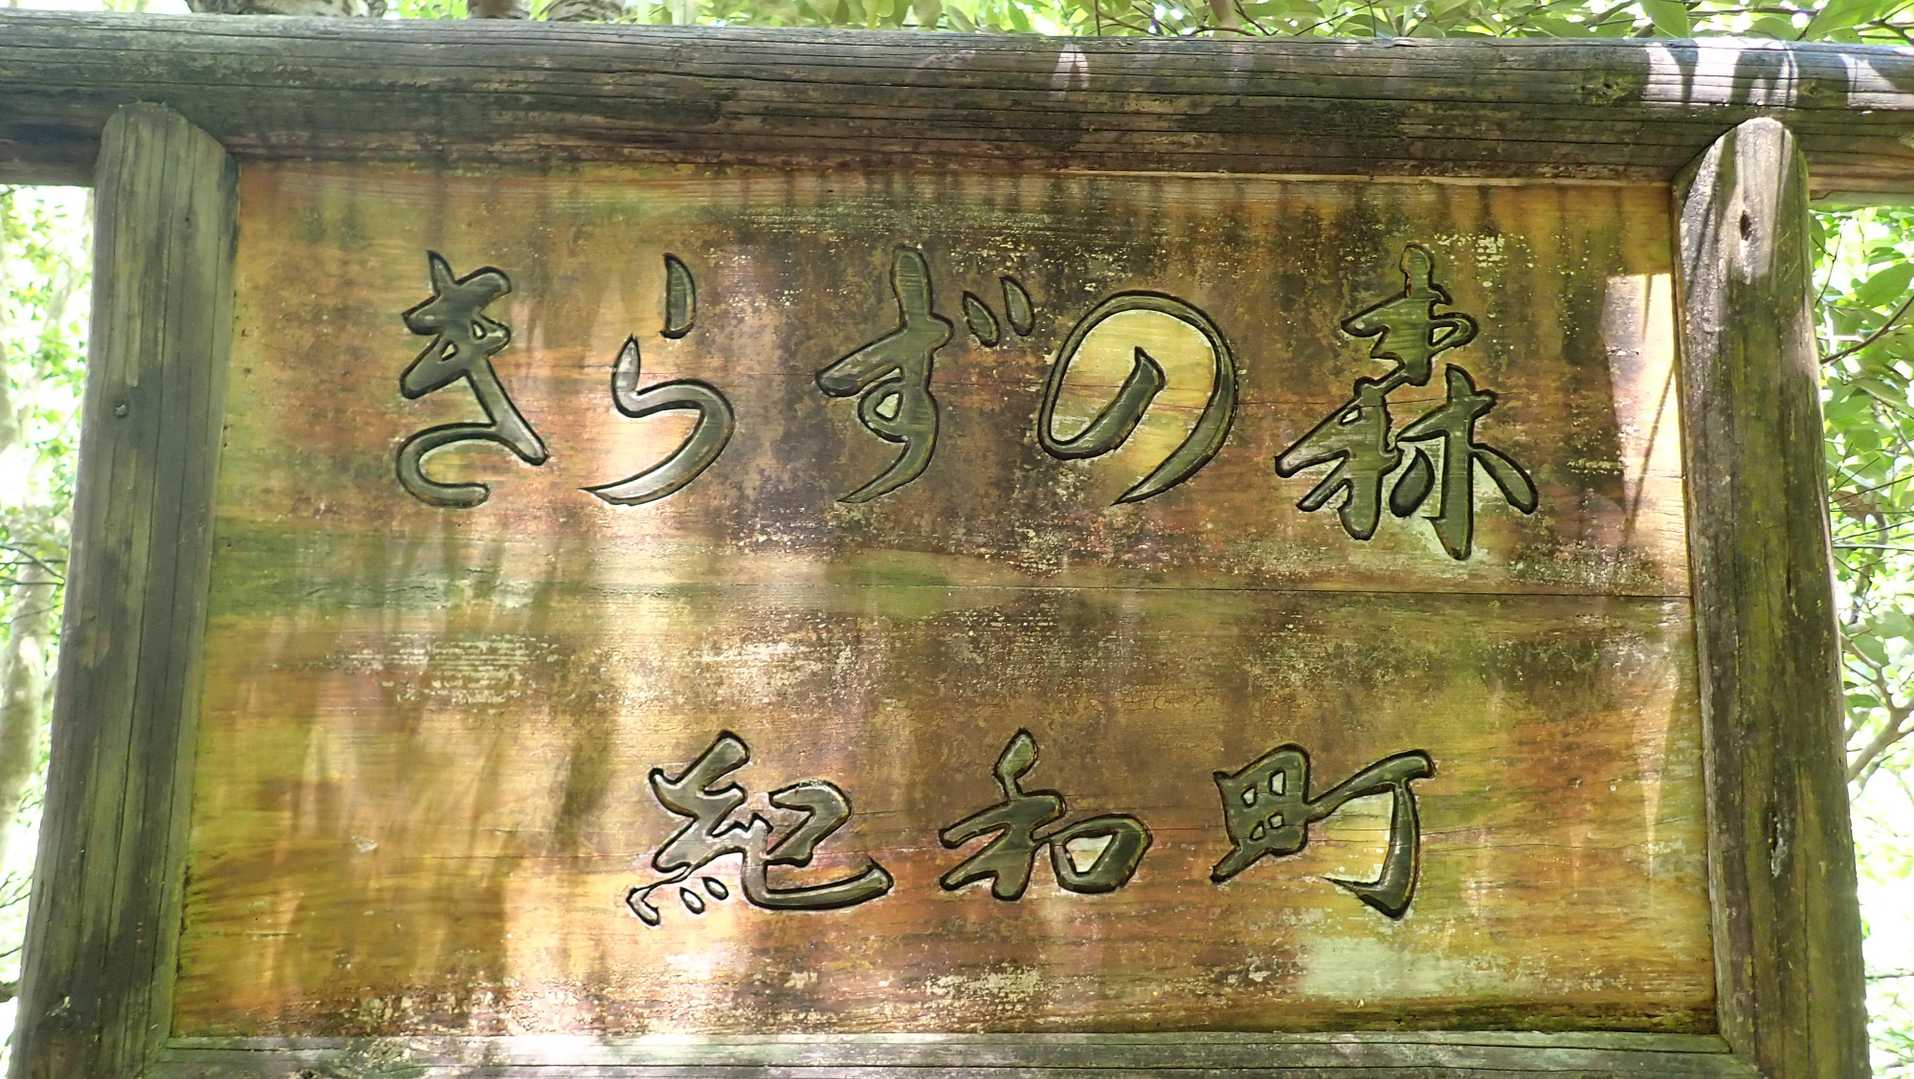 きらずの森
紀和町